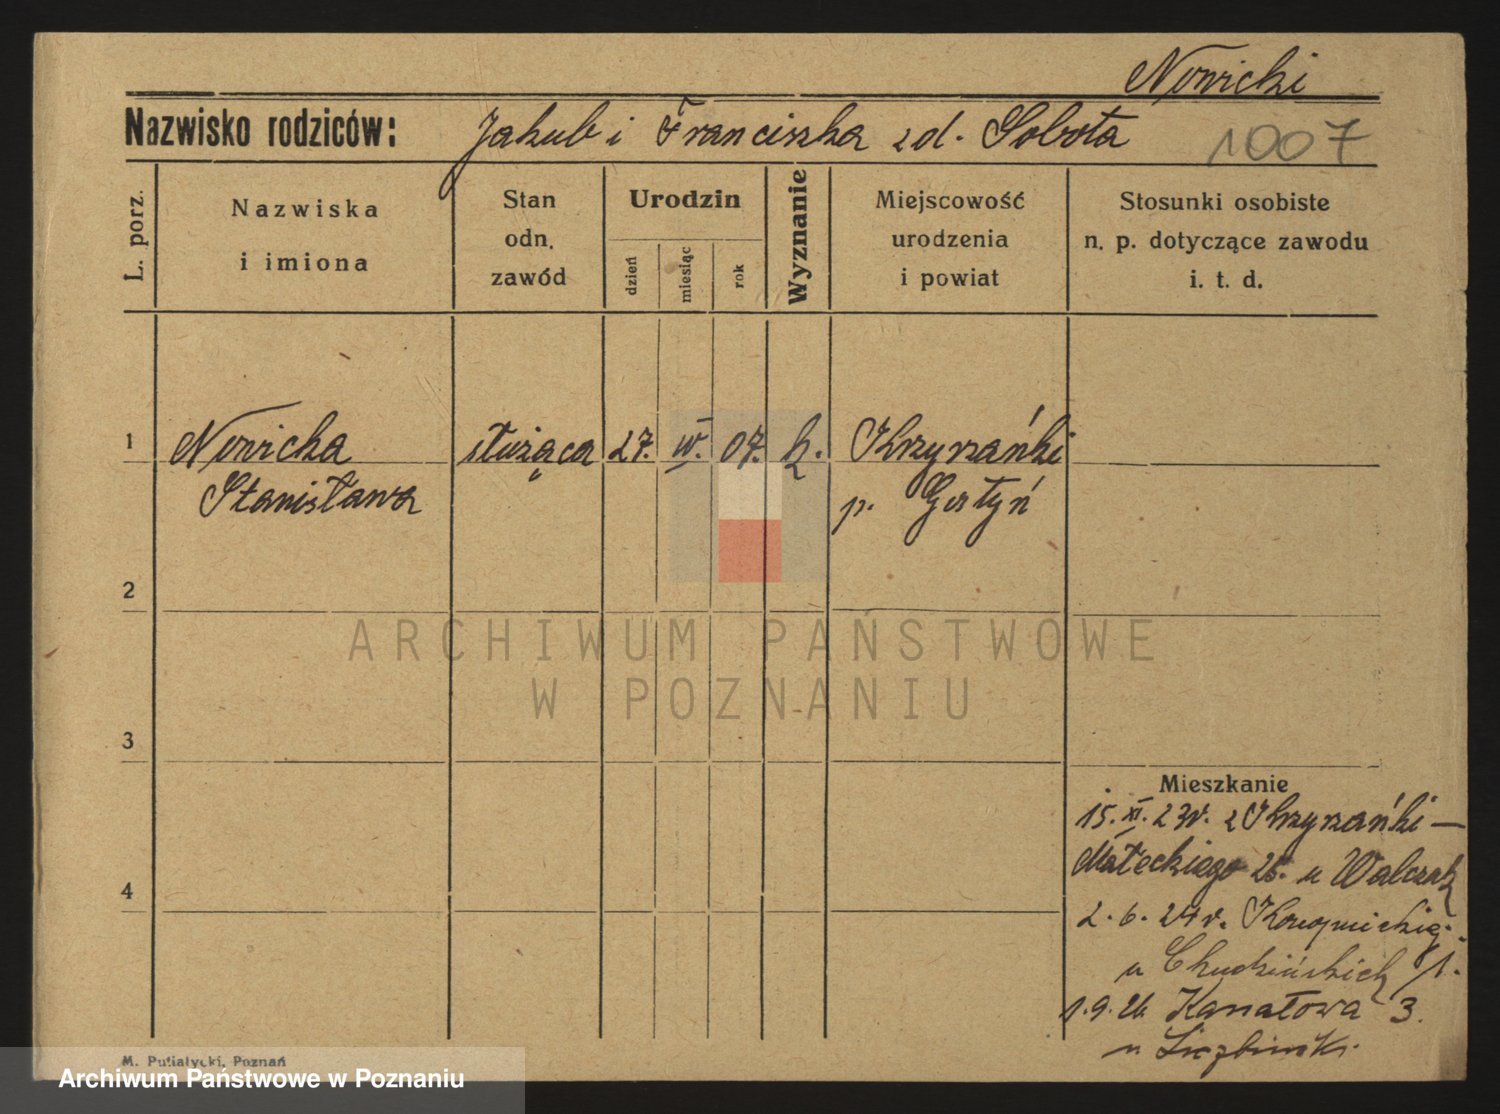 Nowicki
Nazwisko rodziców: Jakub i Franciszka zd. Sobota 1007
L. porz.
Nazwiska
i imiona
Stan
odn.
zawód
Urodzin
dzień
miesiąc
rok
Wyznanie
Miejscowość
urodzenia
i powiat
Stosunki osobiste
n. p. dotyczące zawodu
i. t. d.
1 Nowicka służąca 27. IV. 07. k. Krzyżanki
Stanisława p. Gostyń
2
ARCHIWUM PAŃSTWOWE
W POZNANIU
3
Mieszkanie
15. XI. 23r. z Krzyżanki –
Małeckiego 25. u Walczak
4
2. 6. 24r. Konopnickiej
u Chudzińskich /1.
1. 9. 26 Kanałowa 3.
u
M. Putiatycki, Poznań
Archiwum Państwowe w Poznaniu